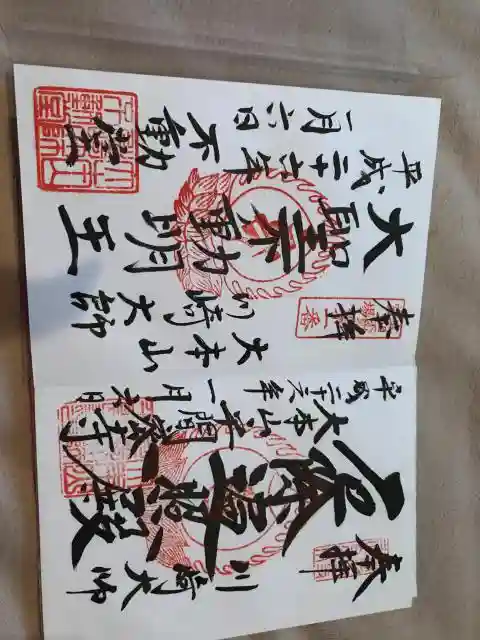 奉拝
川崎大師
厄除遍照殿
大本山平間寺
平成二十六年一月六日
奉拝
大本山
川崎大師
大聖不動明王
平成二十六年
一月六日
不動堂